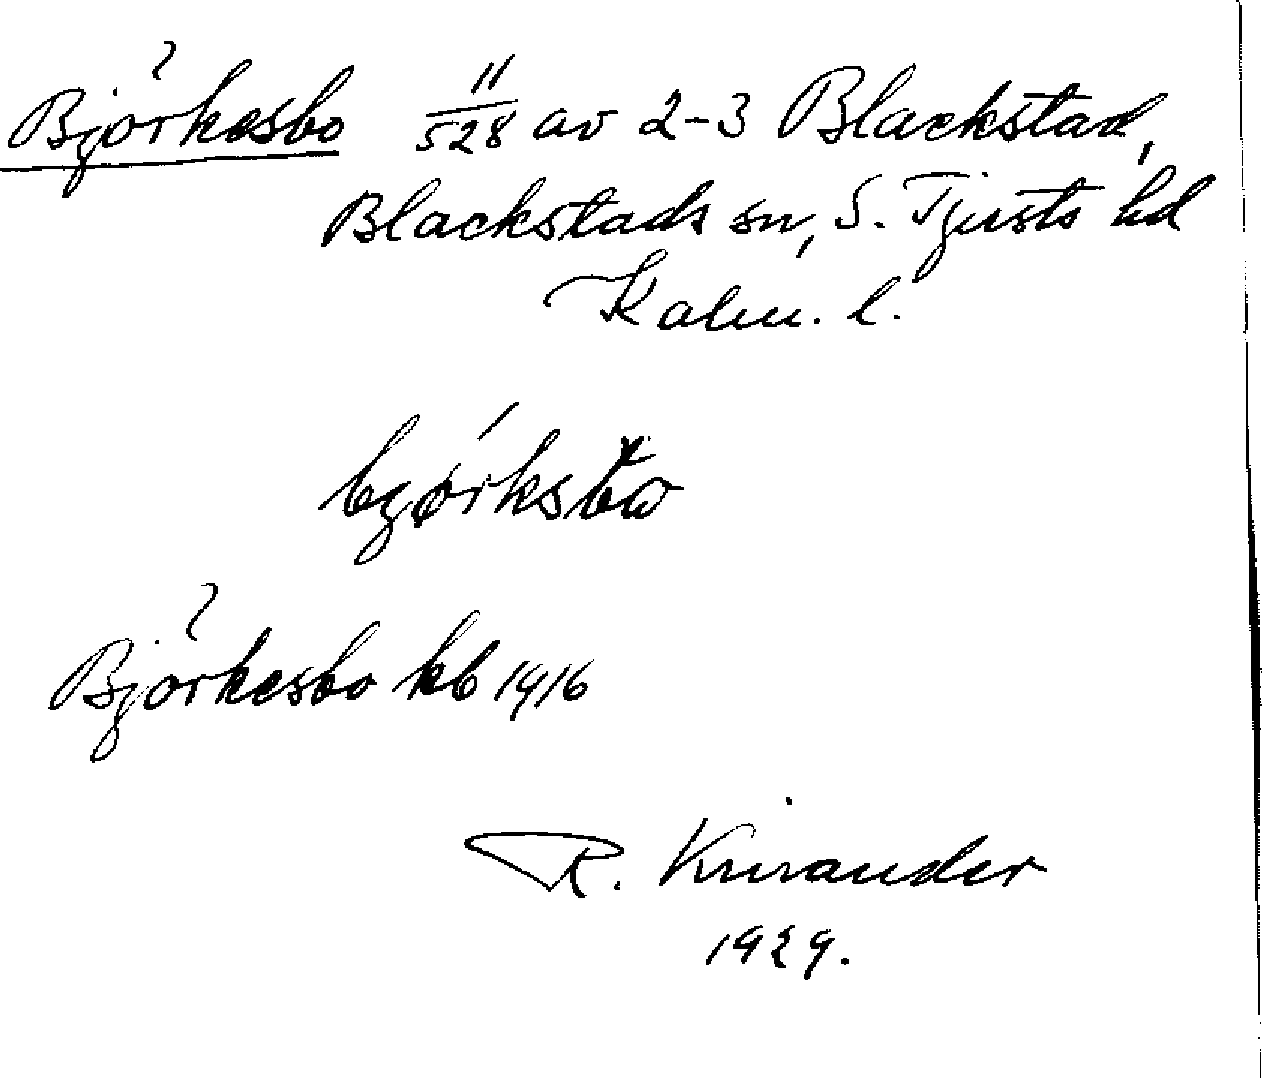 Björkesbo 11/528 av 2-3 Blackstad,
Blackstads sn, S. Tjusts hd
Kalm. l.
Björkesbo kb 1916
R. Knirander
1929.